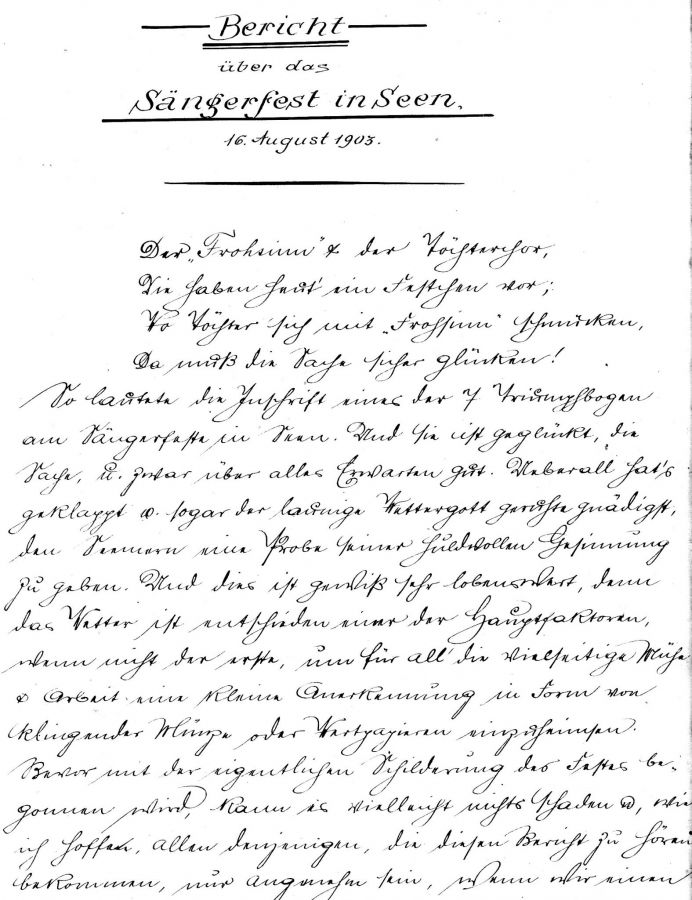 Bericht
über das
Sängerfest in Seen.
16. August 1903.
Der „Frohsinn“ & der Töchterchor,
Die haben heut' ein Festchen vor;
Wo Töchter sich mit „Frohsinn“ schmücken,
Da muß die Sache sicher glücken!
So lautete die Inschrift eines der 7 Triumphbogen
am Sängerfeste in Seen. Und sie ist geglückt, die
Sache, u. zwar über alles Erwarten gut. Ueberall hat's
geklappt & sogar der launige Wettergott geruhte gnädigst,
den Seemern eine Probe seiner huldvollen Gesinnung
zu geben. Und dies ist gewiß sehr lobenswert, denn
das Wetter ist entschieden einer der Hauptfaktoren,
wenn nicht der erste, um für all' die vielseitige Mühe
& Arbeit eine kleine Anerkennung in Form von
klingender Münze oder Wertpapieren einzuheimsen.
Bevor mit der eigentlichen Schilderung des Festes be-
gonnen wird, kann es vielleicht nichts schaden &, wie
ich hoffe, allen denjenigen, die diesen Bericht zu hören
bekommen, nur angenehm sein, wenn wir einen